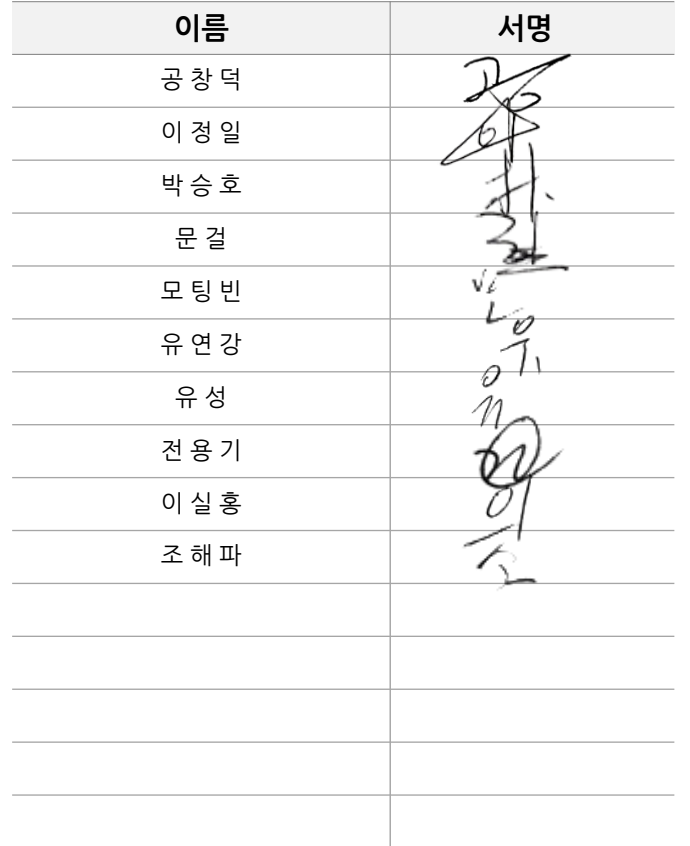 이름 서명
공창덕
이정일
박승호
문걸
모팅빈
유연강
유성
전용기
이실홍
조해파